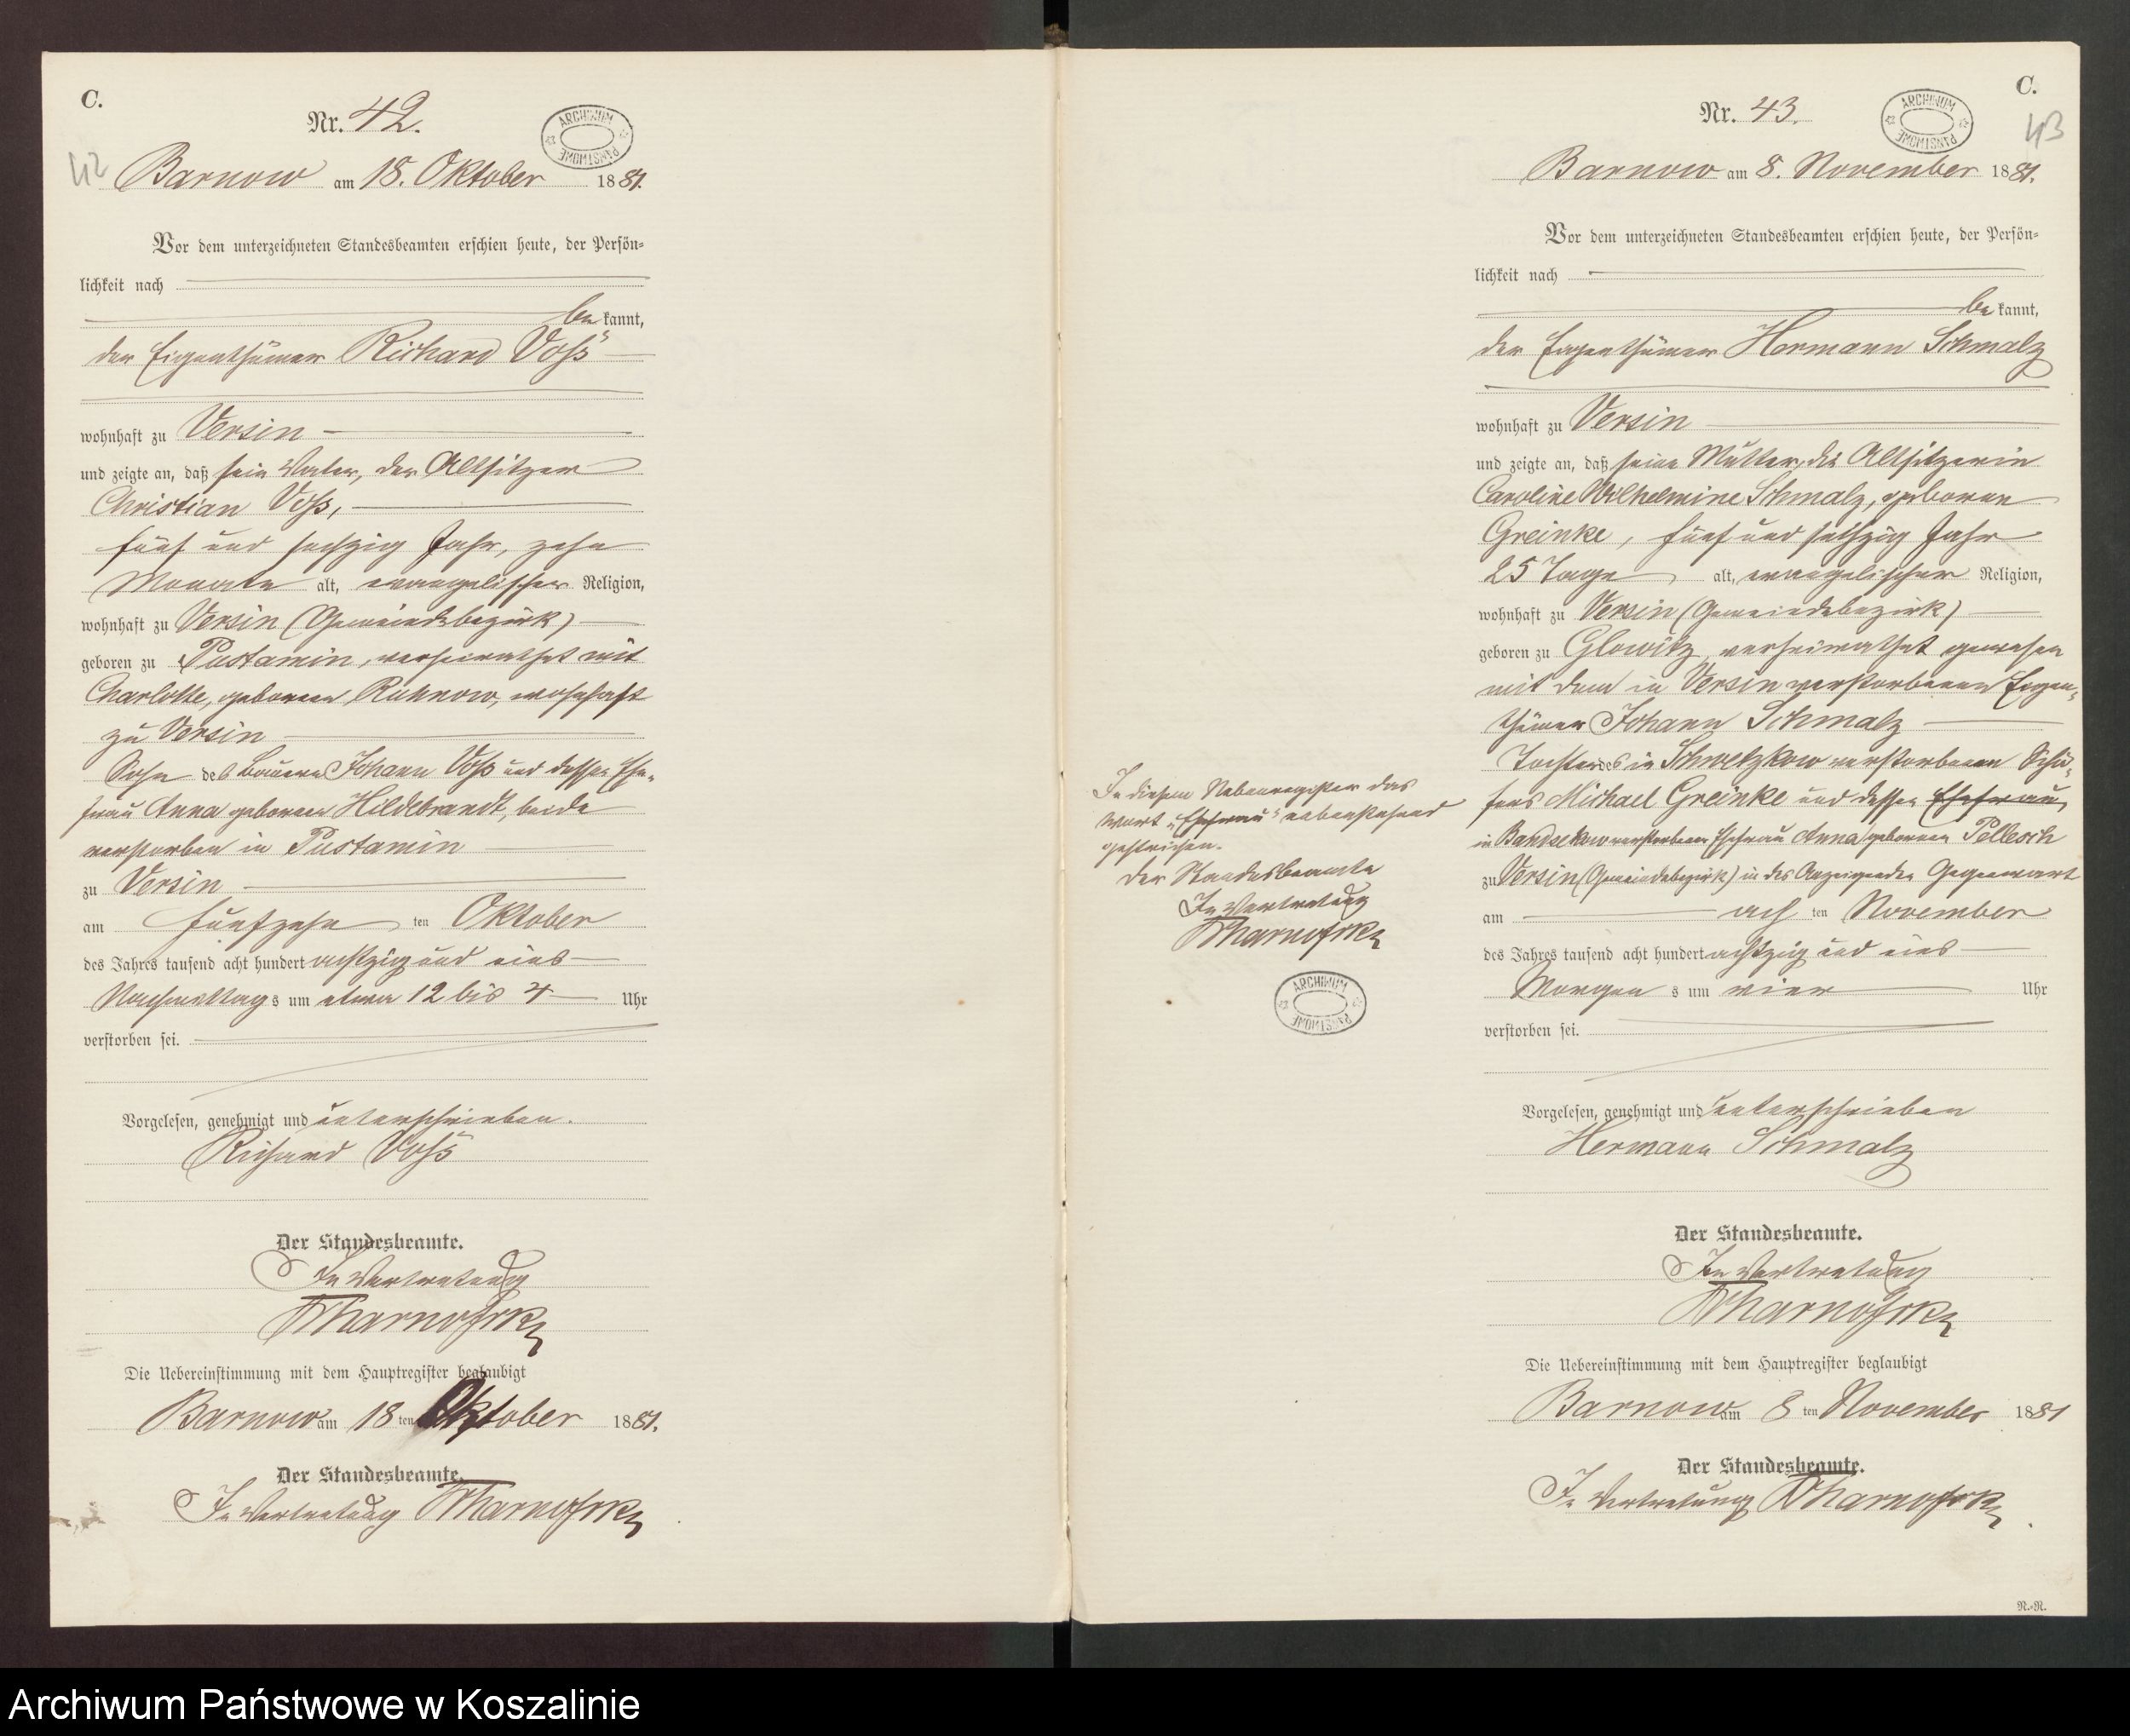 C.
Nr. 42.
ARCHIWUM PAŃSTWOWE
42
Barnow am 18. Oktober 1881.
Vor dem unterzeichneten Standesbeamten erschien heute, der Persön-
lichkeit nach
bekannt,
der Eigenthümer Richard Voß
wohnhaft zu Versin
und zeigte an, daß sein Vater, der Altsitzer
Christian Voß,
fünf und sechzig Jahr, zehn
Monate alt, evangelischer Religion,
wohnhaft zu Versin (Gemeindebezirk)
geboren zu Pustamin, verheirathet mit
Charlotte, geborenen Ruhnow, wohnhaft
zu Versin
Sohn des Bauern Johann Voß und dessen Ehe-
frau Anna geborenen Hildebrandt, beide
verstorben in Pustamin
zu Versin
am fünfzehn ten Oktober
des Jahres tausend acht hundert achtzig und eins
Nachmittags um etwa 12 bis 4 Uhr
verstorben sei.
Vorgelesen, genehmigt und unterschrieben.
Richard Voß
Der Standesbeamte.
In Vertretung
Die Uebereinstimmung mit dem Hauptregister beglaubigt
Barnow am 18 ten Oktober 1881.
Der Standesbeamte.
In Vertretung
In diesem Nebenregister das
Wort „Ehefrau" nebenstehend
gestrichen.
Der Standesbeamte
In Vertretung
ARCHIWUM PAŃSTWOWE
C.
Nr. 43.
ARCHIWUM PAŃSTWOWE
43
Barnow am 8. November 1881.
Vor dem unterzeichneten Standesbeamten erschien heute, der Persön-
lichkeit nach
bekannt,
der Eigenthümer Hermann Schmalz
wohnhaft zu Versin
und zeigte an, daß seine Mutter, die Altsitzerin
Caroline Wilhelmine Schmalz, geborene
Greinke, fünf und sechzig Jahr
25 Tage alt, evangelischer Religion,
wohnhaft zu Versin (Gemeindebezirk)
geboren zu Glowitz, verheirathet gewesen
mit dem in Versin verstorbenen Eigen-
thümer Johann Schmalz
Tochter des in Schwetzkow verstorbenen Schä-
fers Michael Greinke und dessen Ehefrau,
in Bandsekow verstorbenen Ehefrau Anna geborenen Pollesch
zu Versin (Gemeindebezirk) in des Anzeigenden Gegenwart
am acht ten November
des Jahres tausend acht hundert achtzig und eins
Morgens um vier Uhr
verstorben sei.
Vorgelesen, genehmigt und unterschrieben
Hermann Schmalz
Der Standesbeamte.
In Vertretung
Die Uebereinstimmung mit dem Hauptregister beglaubigt
Barnow am 8 ten November 1881
Der Standesbeamte.
In Vertretung
R.-R.
Archiwum Państwowe w Koszalinie